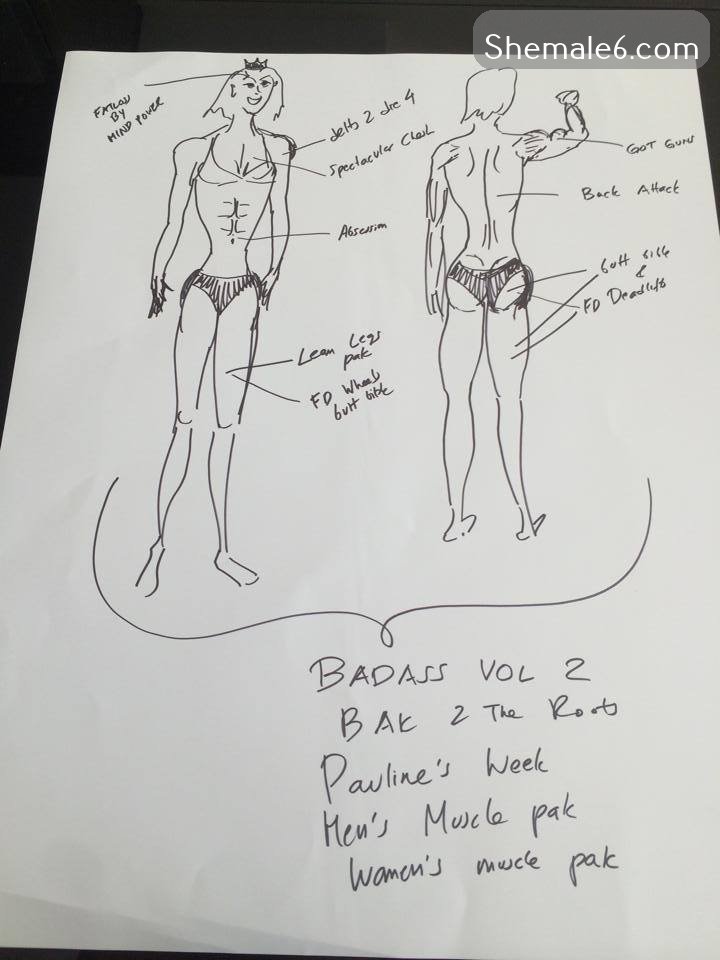 Shemale6.com
FATLOSS
BY
MIND POWER
delts 2 die 4
Spectacular Chest
Absession
Lean Legs
pak
FD Wheels
butt bible
GOT GUNS
Back Attack
butt bible
&
FD Deadlifts
BADASS VOL 2
BAK 2 The Roots
Pauline's Week
Men's Muscle pak
Women's muscle pak